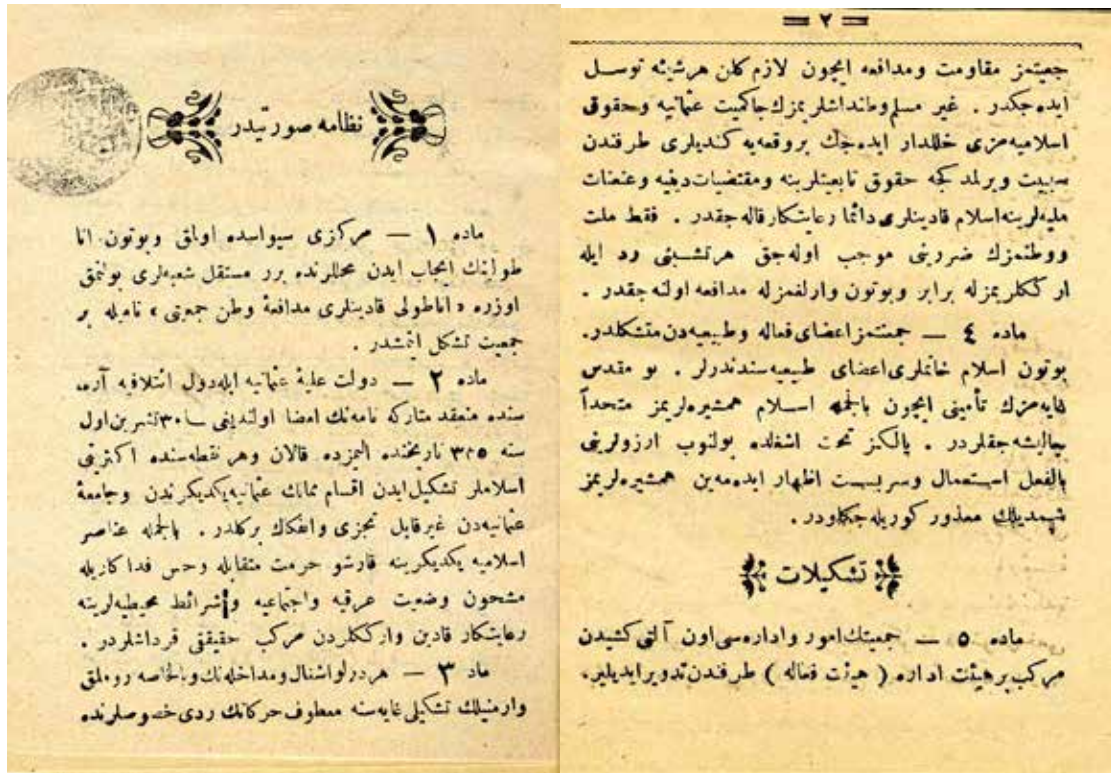 نظامه صورتیدر
ماده ١ — مركزی سیواسده اولمق وبوتون انا
طولینك ایجاب ایدن محللرنده برر مستقل شعبه‌لری بولنمق
اوزره « اناطولی قادینلری مدافعۀ وطن جمعیتی » نامیله بر
جمعیت تشكل ایتمشدر .
ماده ٢ — دولت علیۀ عثمانیه ایله دول ائتلافیه آره‌
سنده منعقد متاركه نامه‌نك امضا اولندیغی ٣٠ تشرین اول
سنه ٣٣٥ تاریخنده المزده قالان وهر نقطه‌سنده اكثریتی
اسلاملر تشكیل ایدن اقسام ممالك عثمانیه یكدیكرندن وجامعۀ
عثمانیه‌دن غیرقابل تجزی وانفكاك بركلدر . بالجمله عناصر
اسلامیه یكدیكرینه قارشو حرمت متقابله وحس فداكاریله
مشحون وضعیت عرقیه واجتماعیه وشرائط محیطیه‌لرینه
رعایتكار قادین وارككلردن مركب حقیقی قرداشلردر .
ماد ٣ — هردرلو اشغال ومداخله‌نك وبالخاصه روملق
وارمنیلك تشكیلی غایه‌سنه معطوف حركاتك ردی خصوصلرنده
= ٢ =
جمعیتمز مقاومت ومدافعه ایچون لازم كلن هرشیئه توسـل
ایده‌جكدر . غیر مسلم وطنداشلریمزك حاكمیت عثمانیه وحقوق
اسلامیه‌مزی خللدار ایده‌جك بروقعه‌یه كندیلری طرفندن
سبیت ویرلمدكجه حقوق تابعیتلرینه ومقتضیات دینیه وعنعنات
ملیه‌لرینه اسلام قادینلری دائما رعایتكار قاله‌جقدر . فقط ملت
ووطنمزك ضررینی موجب اوله‌جق هرتشبثی رد ایله
ارككلریمزله برابر وبوتون وارلغمزله مدافعه اولنه‌جقدر .
ماده ٤ — جمعیتمز اعضای فعاله وطبیعیه‌دن متشكلدر.
بوتون اسلام خانملری اعضای طبیعیه‌سندندرلر . بو مقدس
غایه‌مزك تأمینی ایچون بالجمله اسـلام همشیره‌لریمز متحداً
چالیشه‌جقلردر . یالكز تحت اشغلده بولنوب ارزولرینی
بالفعل استعمال وسربست اظهار ایده‌مه‌ین همشیره‌لریمز
شیمدیلك معذور كوریله‌جكلودر .
تشكیلات
ماده ٥ — جمعیتك امور واداره‌سی اون آلتی كشیدن
مركب برهیئت اداره ( هیئت فعاله ) طرفندن تدویر ایدیلیر.